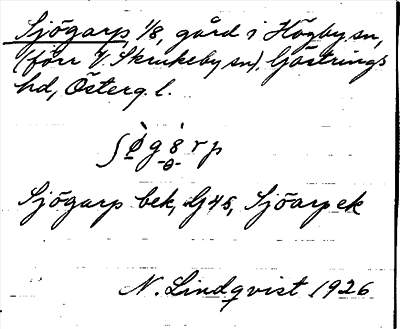 Sjögarp 1/8, gård i Högby sn,
(förr V. Skrukeby sn), Göstrings
hd, Österg. l.
Sjögarp bek, Lj 45, Sjöarp ek
N. Lindqvist 1926